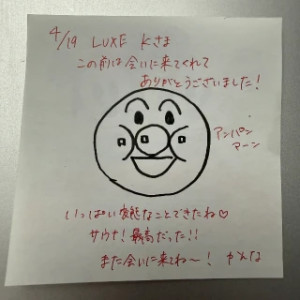 4/19 LUXE Kさま
この前は会いに来てくれて
ありがとうございました!
アンパン
マーン
いっぱい変態なことできたね♡
サウナ!最高だった!!
また会いに来てね〜! かんな